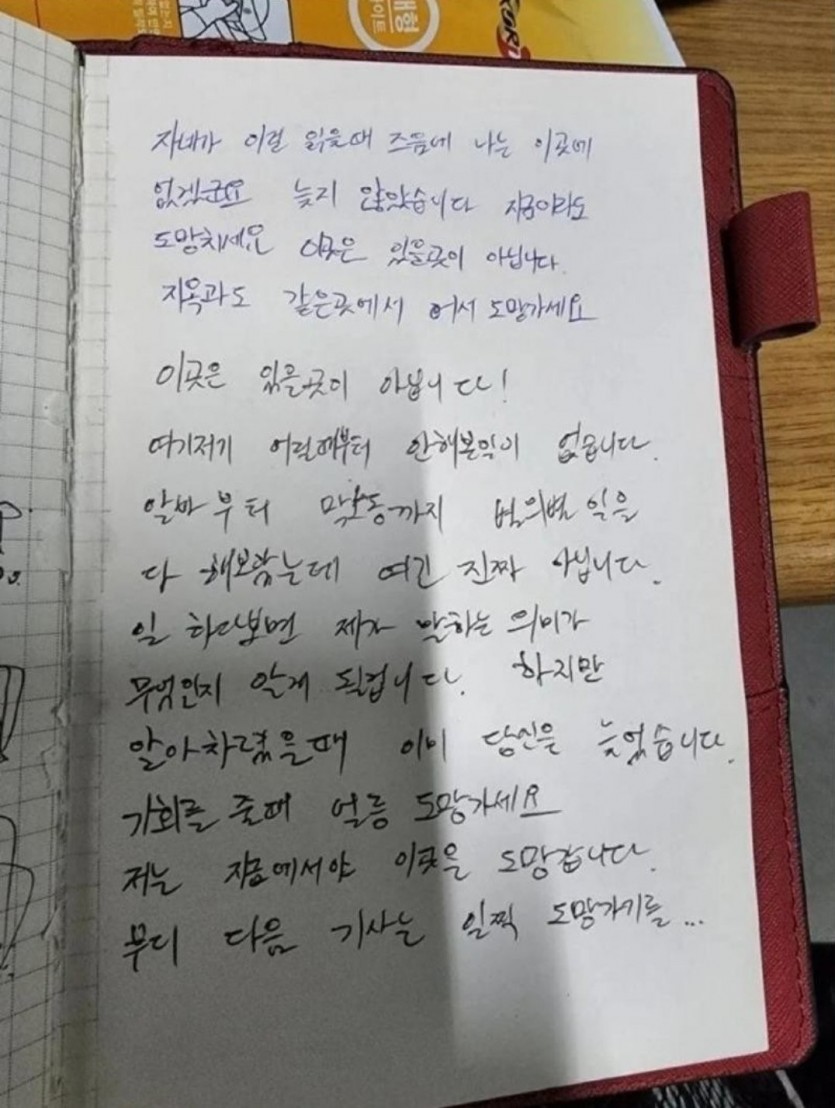 대형
이트
자네가 이걸 읽을때 즈음에 나는 이곳에
없겠군요 늦지 않았습니다 지금이라도
도망치세요 이곳은 있을곳이 아닙니다.
지옥과도 같은곳에서 어서 도망가세요
이곳은 있을곳이 아닙니다!
여기저기 어릴때부터 안해본일이 없습니다.
알바부터 막노동까지 별의별 일을
다 해보았는데 여긴 진짜 아닙니다.
일 하다보면 제가 말하는 의미가
무엇인지 알게 될겁니다. 하지만
알아차렸을때 이미 당신은 늦었습니다.
기회를 줄때 얼릉 도망가세요
저는 지금에서야 이곳을 도망갑니다.
부디 다음 기사는 일찍 도망가기를...